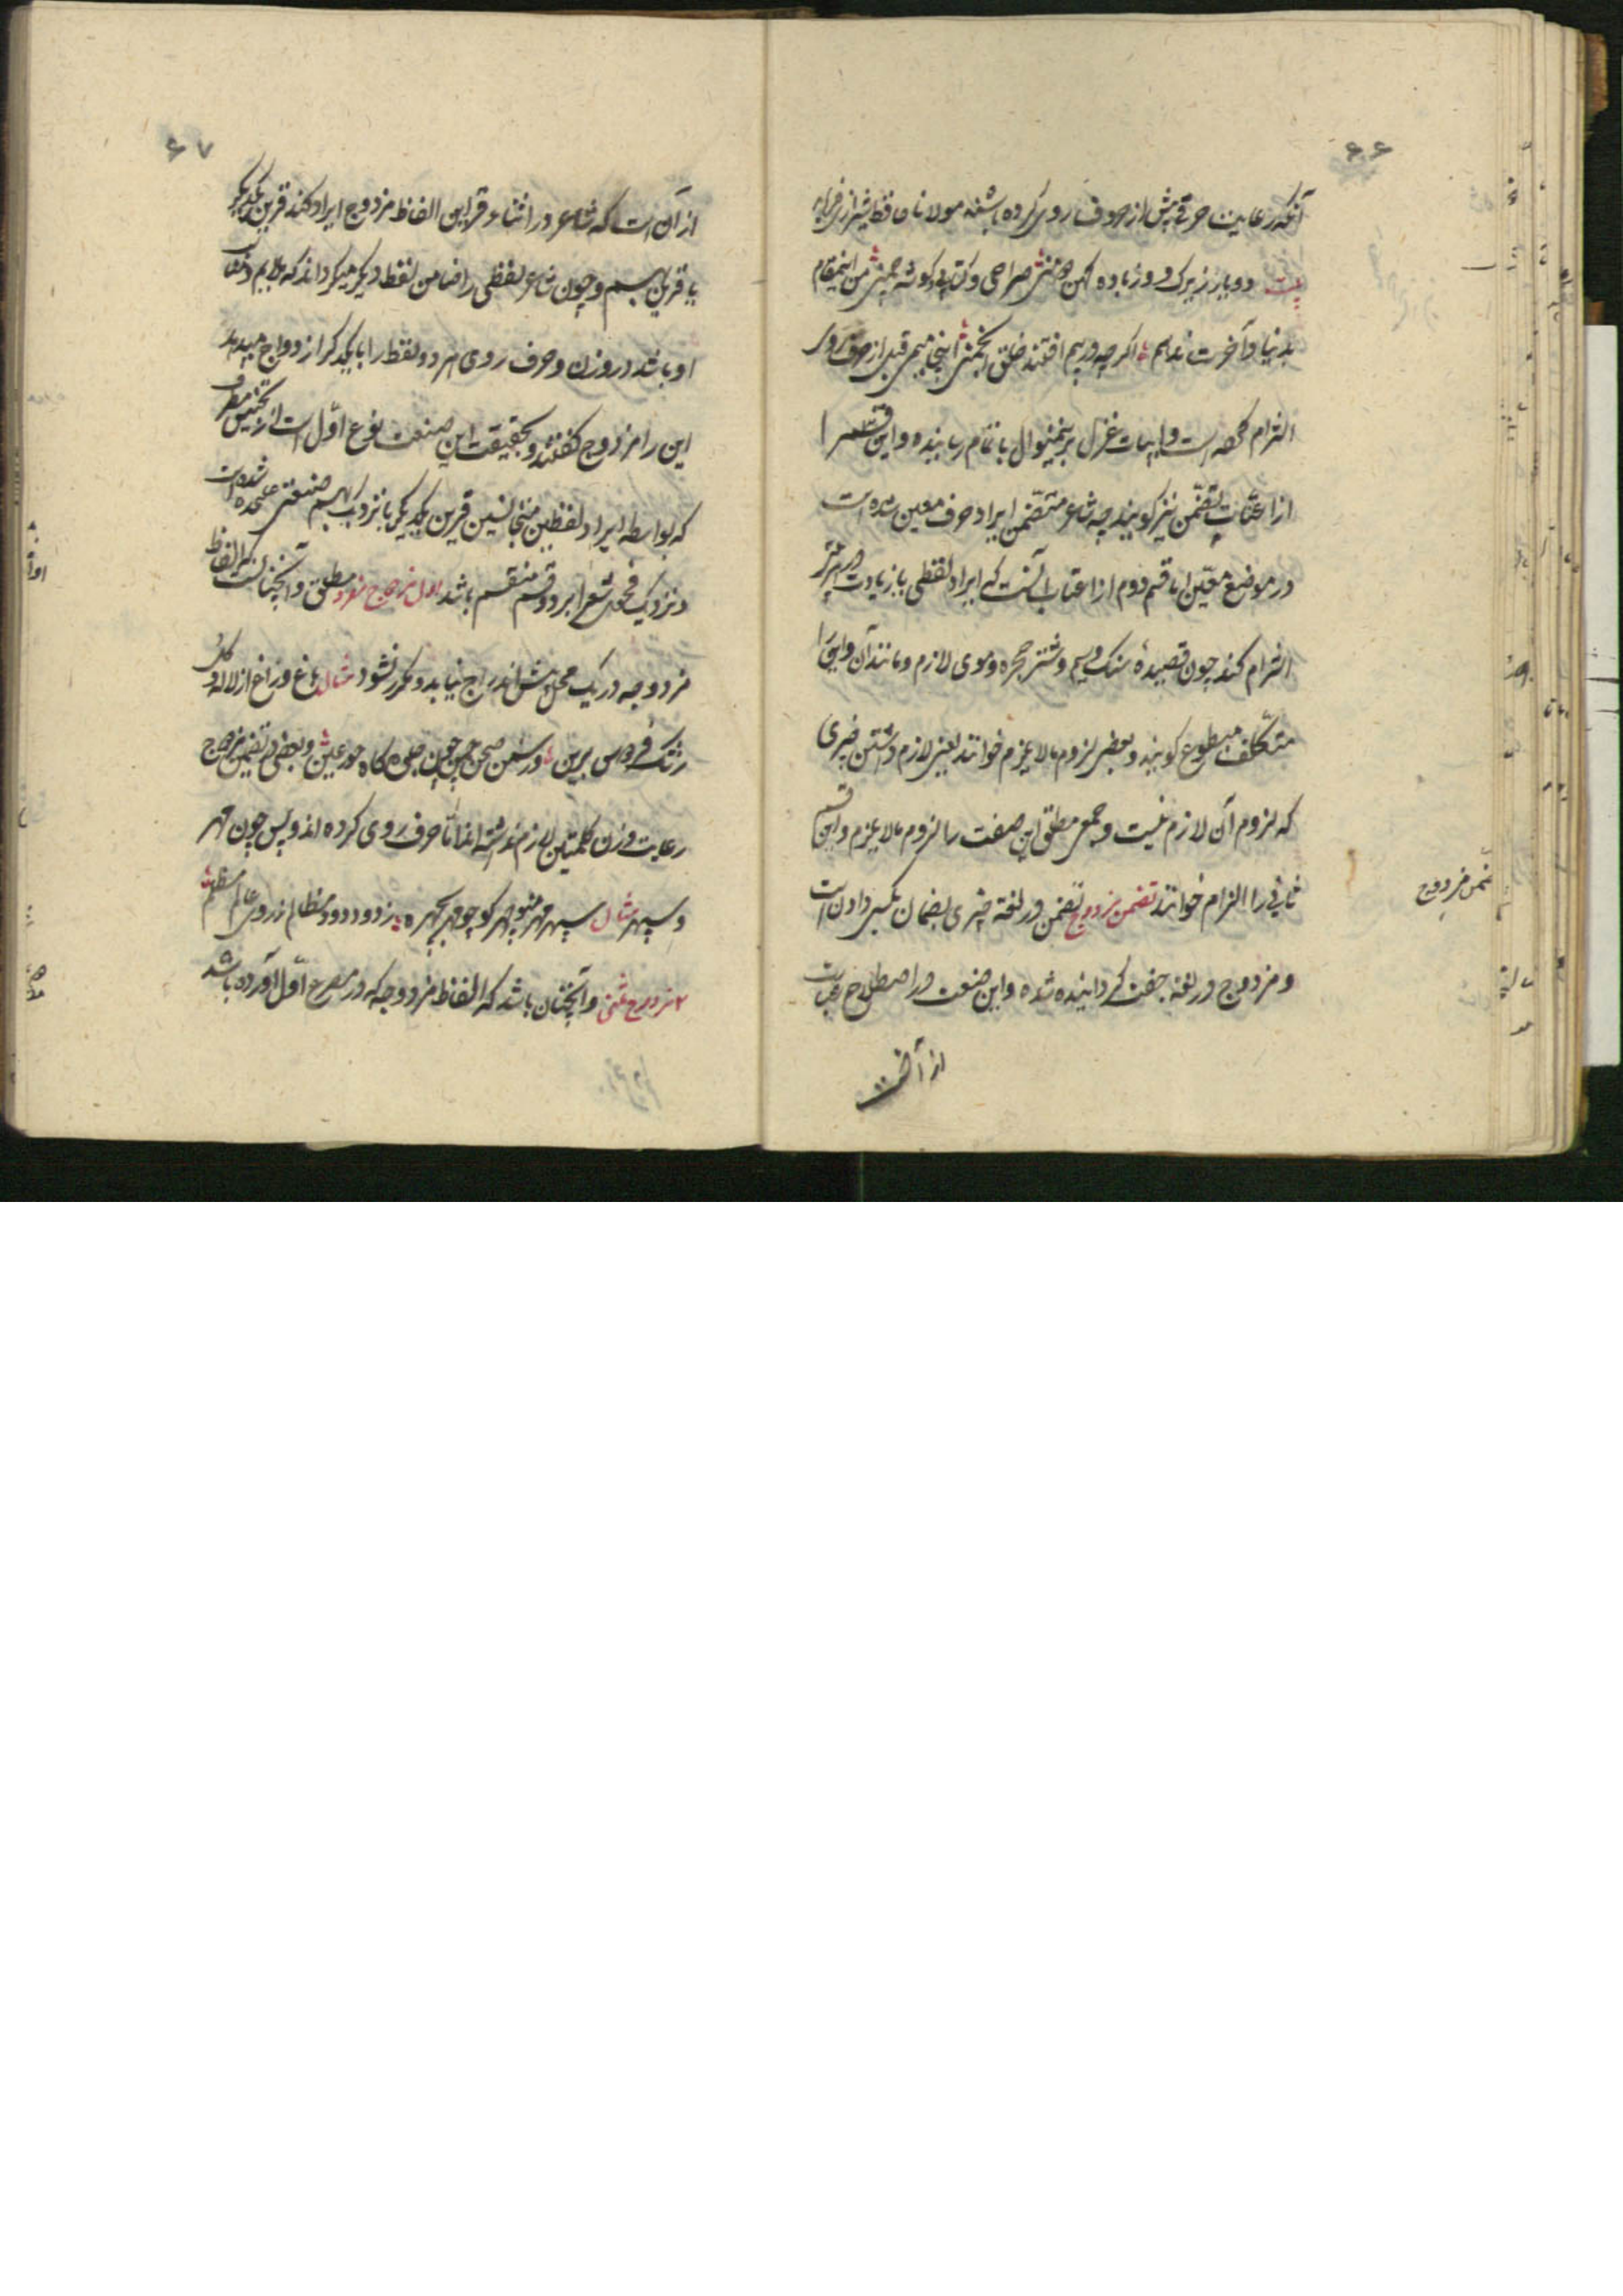 ۶۶
آنکه رعایت حرفی پیش از حروف روی کرده باشند مولانا حافظ شیراز فرماید
بیت دو یار زیرک و از باده کهن دو منی صراحی و کتابی و گوشه چمنی من این مقام
بدنیا و آخرت ندهم اگر چه در پیم افتند خلق انجمنی اینجا میم قبل از حرف روی
التزام کرده است و ابیات غزل برینمنوال باتمام رسانیده و این قسم را
از اعنات تضمن نیز گویند چه شاعر متضمن ایراد حرف معین شده است
در موضع معین اما قسم دوم از اعنات آنست که ایراد لفظی یا زیادت در هر بیت
التزام کند چون قصیده سنک و سیم و شتر حجره و موی لازم و مانند آن و این را
متکلف مطبوع گویند و بعضی لزوم مالایلزم خوانند یعنی لازم داشتن چیزی
که لزوم آن لازم نیست و جمعی مطلق این صنعت را لزوم مالایلزم و این قسم
ثانی را التزام خوانند تضمن مزدوج تضمن در لغة چیزی بضمان بکسی دادن است
و مزدوج در لغة جفت کردانیده شده و این صنعت در اصطلاح عبارت
از آنست
تضمن مزدوج
۶۷
از آن است که شاعر در اثناء قراین الفاظ مزدوج ایراد کند قرین یکدیگر
یا قریب بهم و چون شاعر لفظی را ضامن لفظ دیگر میکرداند که ملایم و
او باشد در وزن و حرف روی هر دو لفظ را با یکدیگر ازدواج میدهد
این را مزدوج گفتند و بحقیقت این صنعت نوع اول است از تجنیس مطرف
که بواسطه ایراد لفظین متجانسین قرین یکدیگر یا نزدیک بهم صنعتی علیحده شده است
و نزدیک فحول شعرا بر دو قسم منقسم باشد اول مزدوج مفرد مطلق و آنچنانست که الفاظ
مزدوجه در یک محل بیش اندراج نیابد و مکرر نشود مثال باغ و راغ از لاله و گل
رشک فردوس برین در سمن صحن چمن چون جلوه گاه حور عین و بعضی در تضمن مزدوج
رعایت وزن کلمتین لازم نداشته اند اما حرف روی کرده اند و بس چون مهر
و سپهر مثال سپهر مهر منوچهر کو چو مهر بچهره زدود دود مظالم ز روی عالم
۲ مزدوج مثنی و آنچنان باشد که الفاظ مزدوجه که در مصرع اول آورده باشد